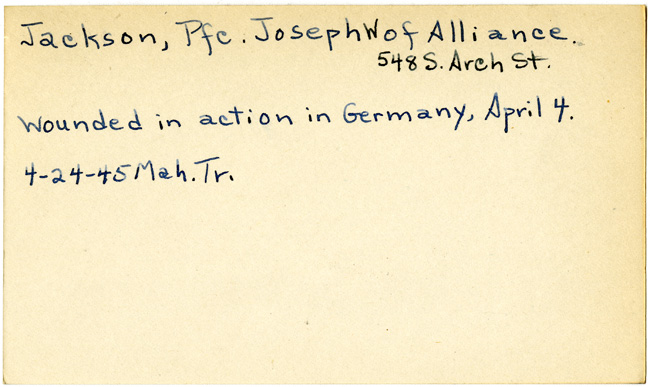 Jackson, Pfc. Joseph W of Alliance.
548 S. Arch St.
Wounded in action in Germany, April 4.
4-24-45 Mah. Tr.